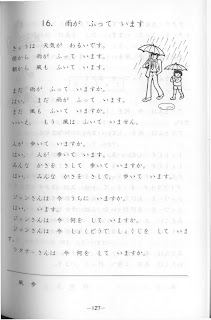 16. 雨が ふって います
きょうは 天気が わるいです。
朝から 雨が ふって います。
朝から 風も ふいて います。
まだ 雨が ふって いますか。
はい、 まだ 雨が ふって います。
まだ 風も ふいて いますか。
いいえ、 もう 風は ふいて いません。
人が 歩いて いますか。
はい、 人が 歩いて います。
みんな かさを さして 歩いて いますか。
はい、 みんな かさを さして、 歩いて います。
ジョンさんは 今 うちに いますか。
はい、 います。
ジョンさんは 今 何を して いますか。
ジョンさんは 今 しょくどうで しょくじを して いま
す。
さんは 今 何を して いますか。
風 歩
—127—